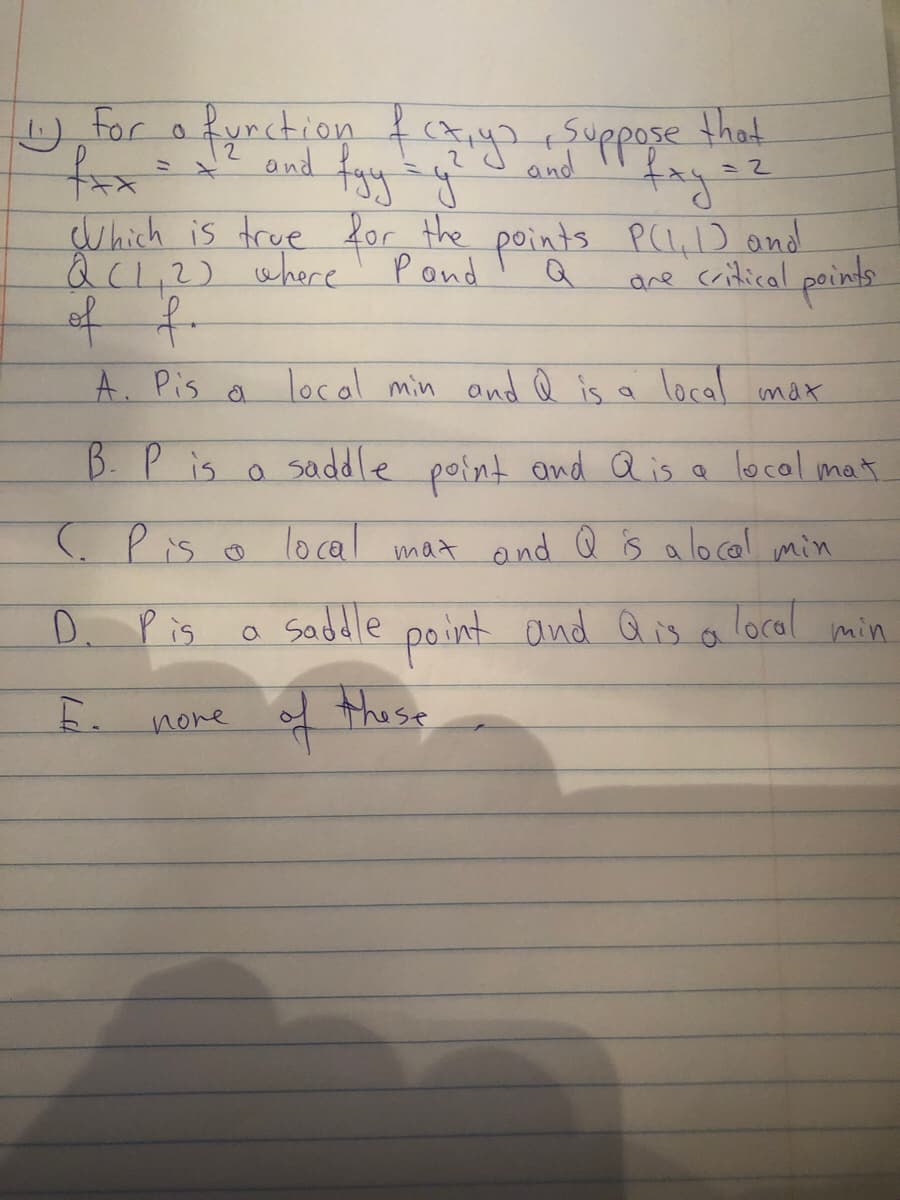 1.) For a function f(x,y), suppose that
fxx = x² and fyy = y² and fxy = 2
Which is true for the points P(1,1) and
Q(1,2) where P and Q are critical points
of f.
A. P is a local min and Q is a local max
B. P is a saddle point and Q is a local max
C. P is a local max and Q is a local min
D. P is a saddle point and Q is a local min
E. none of these